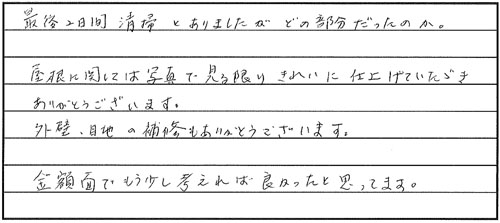 最後2日間 清掃 とありましたが どの部分だったのか。
屋根に関しては写真で見る限りきれいに仕上げていただき
ありがとうございます。
外壁、目地の補修もありがとうございます。
金額面でもう少し考えれば良かったと思ってます。